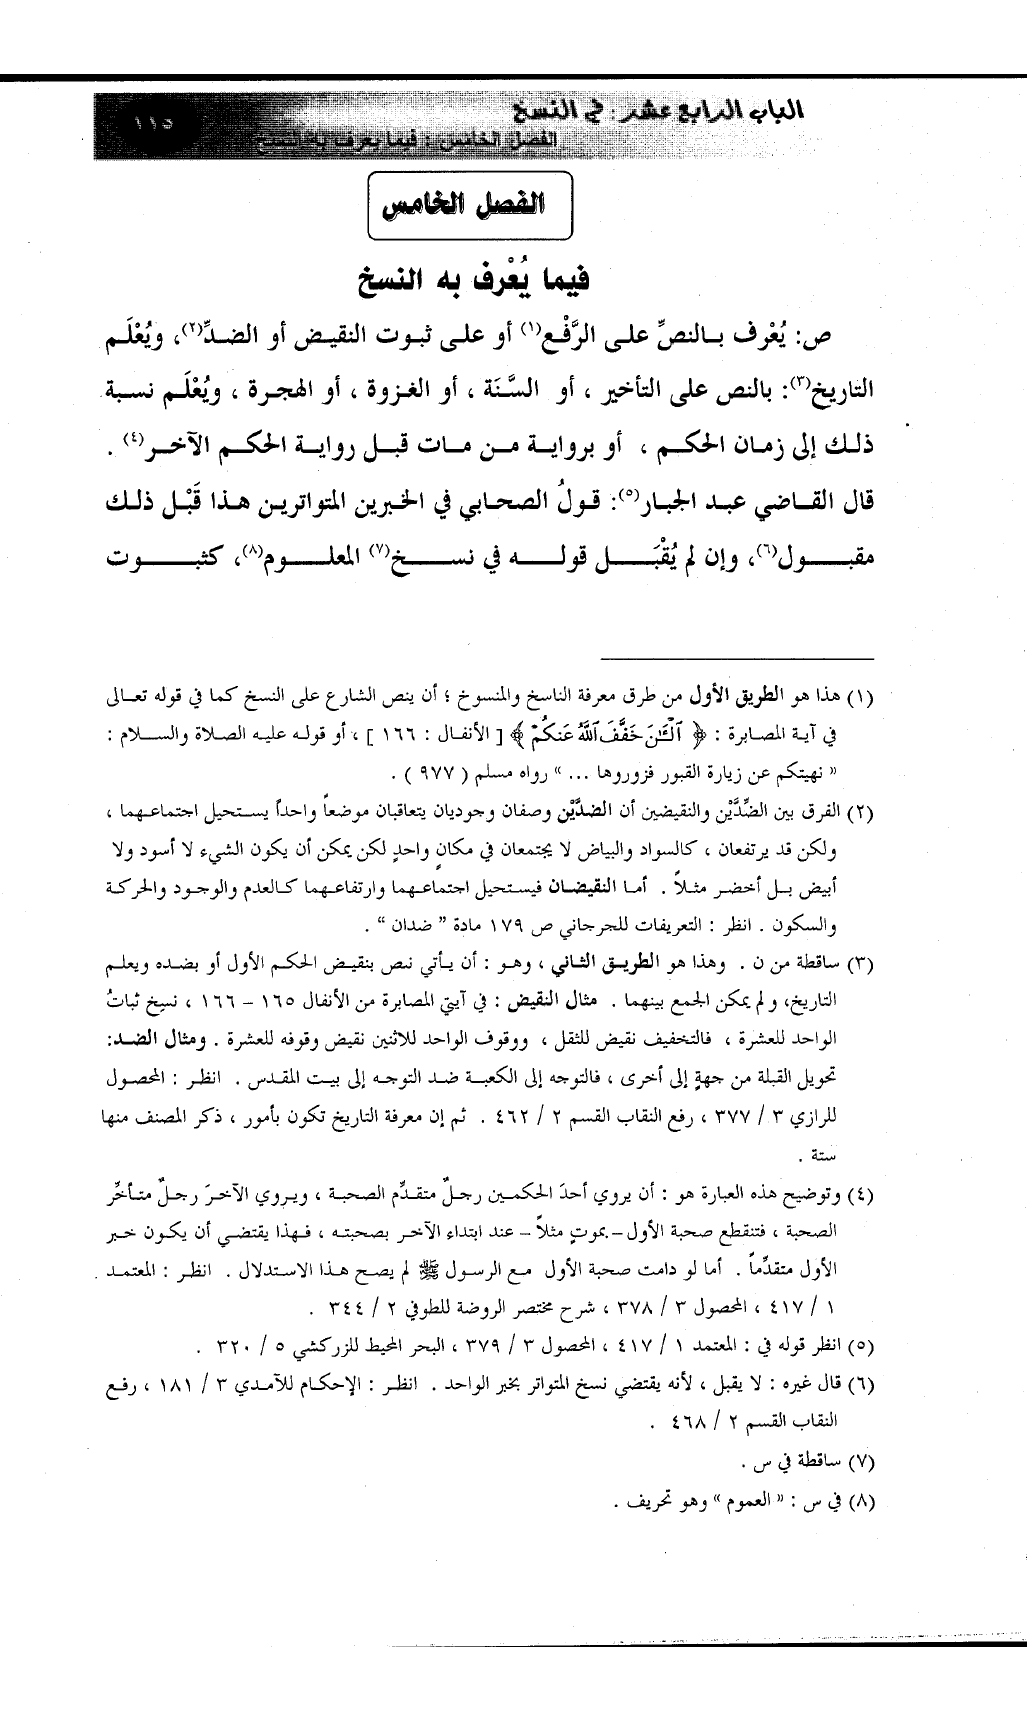 الباب الرابع عشر : في النسخ
١١٥
الفصل الخامس : فيما يعرف به النسخ
الفصل الخامس
فيما يُعْرف به النسخ
ص: يُعْرف بالنصِّ على الرَّفْع(١) أو على ثبوت النقيض أو الضدِّ(٢)، ويُعْلَم
التاريخ(٣): بالنص على التأخير ، أو السَّنَة ، أو الغزوة ، أو الهجرة ، ويُعْلَم نسبة
ذلك إلى زمان الحكم ، أو برواية من مات قبل رواية الحكم الآخر(٤) .
قال القاضي عبد الجبار(٥): قولُ الصحابي في الخبرين المتواترين هذا قَبْل ذلك
مقبول(٦)، وإن لم يُقْبَل قوله في نسخ(٧) المعلوم(٨)، كثبوت
(١) هذا هو الطريق الأول من طرق معرفة الناسخ والمنسوخ ؛ أن ينص الشارع على النسخ كما في قوله تعالى
في آية المصابرة : ﴿ ٱلْـَٰٔنَ خَفَّفَ ٱللَّهُ عَنكُمْ ﴾ [ الأنفال : ١٦٦ ] ، أو قوله عليه الصلاة والسلام :
« نهيتكم عن زيارة القبور فزوروها ... » رواه مسلم ( ٩٧٧ ) .
(٢) الفرق بين الضِّدَّيْن والنقيضين أن الضدَّيْن وصفان وجوديان يتعاقبان موضعاً واحداً يستحيل اجتماعهما ،
ولكن قد يرتفعان ، كالسواد والبياض لا يجتمعان في مكانٍ واحدٍ لكن يمكن أن يكون الشيء لا أسود ولا
أبيض بل أخضر مثلاً . أما النقيضان فيستحيل اجتماعهما وارتفاعهما كالعدم والوجود والحركة
والسكون . انظر : التعريفات للجرجاني ص ١٧٩ مادة " ضدان " .
(٣) ساقطة من ن . وهذا هو الطريق الثاني ، وهو : أن يأتي نص بنقيض الحكم الأول أو بضده ويعلم
التاريخ، ولم يمكن الجمع بينهما . مثال النقيض : في آيتي المصابرة من الأنفال ١٦٥ – ١٦٦ ، نسخ ثباتُ
الواحد للعشرة ، فالتخفيف نقيض للثقل ، ووقوف الواحد للاثنين نقيض وقوفه للعشرة . ومثال الضد:
تحويل القبلة من جهةٍ إلى أخرى ، فالتوجه إلى الكعبة ضد التوجه إلى بيت المقدس . انظر : المحصول
للرازي ٣ / ٣٧٧ ، رفع النقاب القسم ٢ / ٤٦٢ . ثم إن معرفة التاريخ تكون بأمور ، ذكر المصنف منها
ستة .
(٤) وتوضيح هذه العبارة هو : أن يروي أحدَ الحكمين رجلٌ متقدِّم الصحبة ، ويروي الآخرَ رجلٌ متأخِّر
الصحبة ، فتنقطع صحبة الأول – بموتٍ مثلاً – عند ابتداء الآخر بصحبته ، فهذا يقتضي أن يكون خبر
الأول متقدِّماً . أما لو دامت صحبة الأول مع الرسول ﷺ لم يصح هذا الاستدلال . انظر : المعتمد
١ / ٤١٧ ، المحصول ٣ / ٣٧٨ ، شرح مختصر الروضة للطوفي ٢ / ٣٤٤ .
(٥) انظر قوله في : المعتمد ١ / ٤١٧ ، المحصول ٣ / ٣٧٩ ، البحر المحيط للزركشي ٥ / ٣٢٠ .
(٦) قال غيره : لا يقبل ، لأنه يقتضي نسخ المتواتر بخبر الواحد . انظر : الإحكام للآمدي ٣ / ١٨١ ، رفع
النقاب القسم ٢ / ٤٦٨ .
(٧) ساقطة في س .
(٨) في س : « العموم » وهو تحريف .